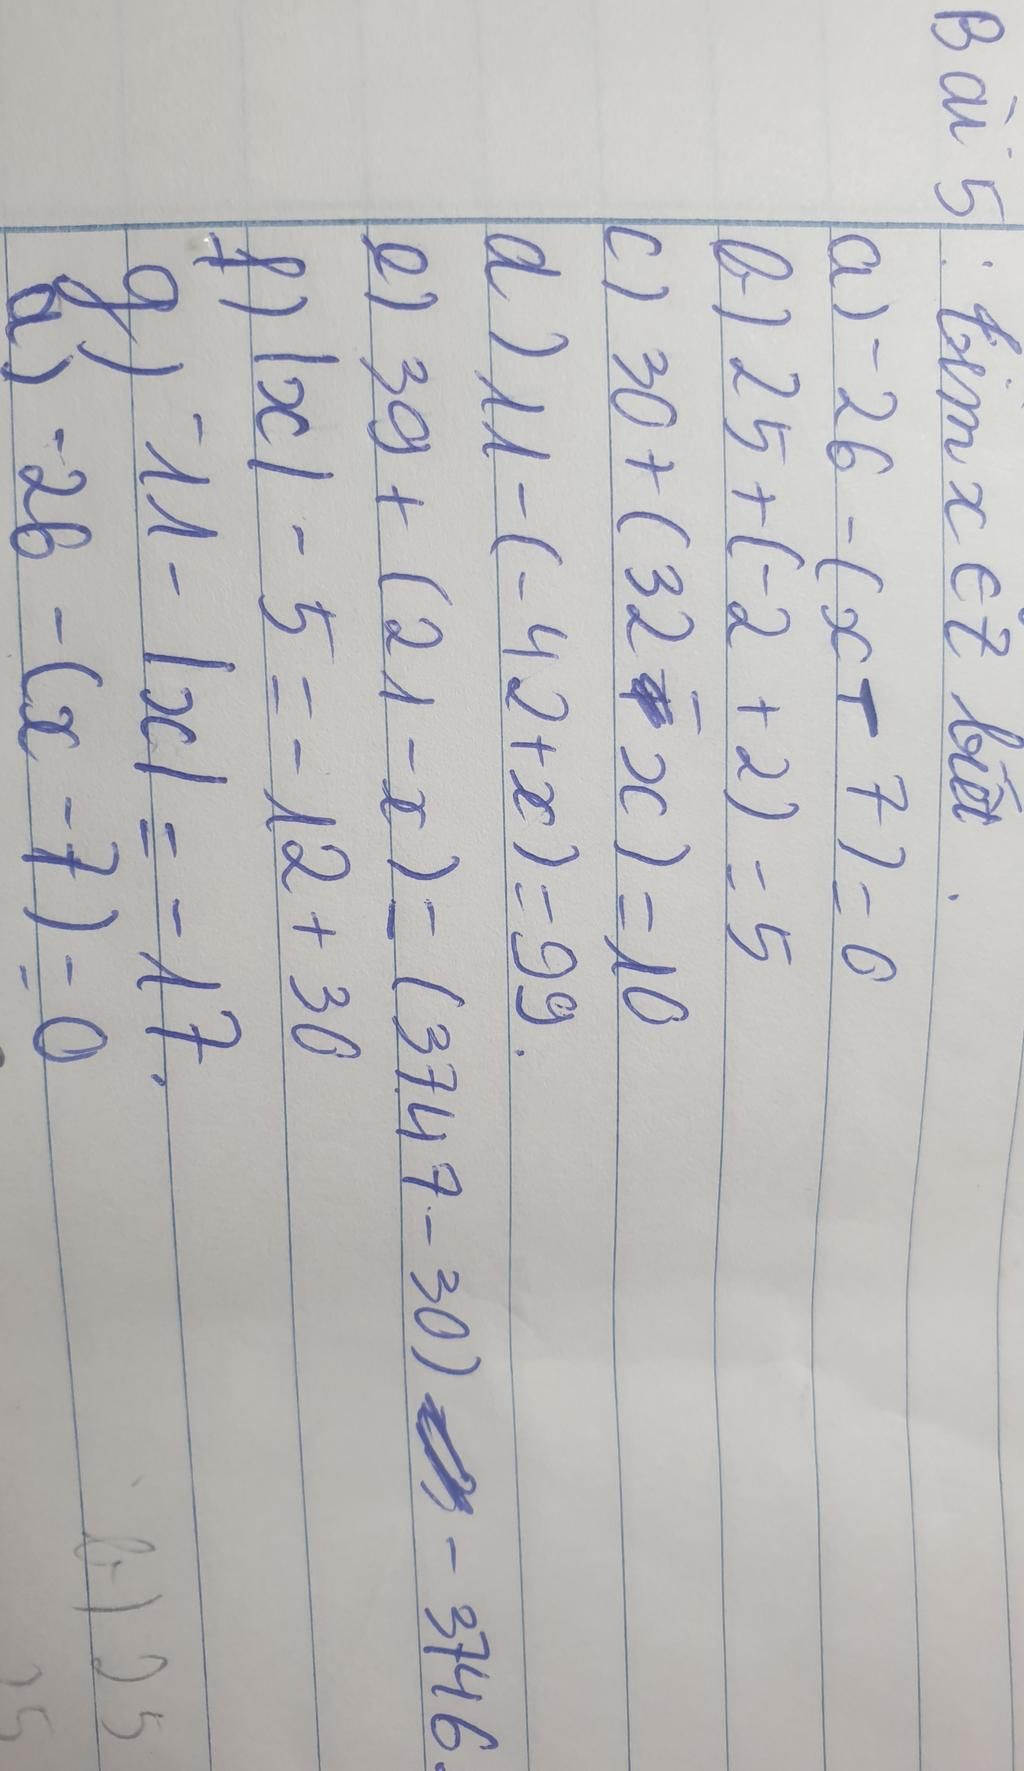 Bài 5: tìm x ∈ Z biết.
a) -26 - (x - 7) = 0
b) 25 + (-2 + x) = 5
c) 30 + (32 - x) = 10
d) 11 - (-42 + x) = 99.
e) 39 + (21 - x) = (3747 - 30) - 3746.
f) |x| - 5 = -12 + 30
g) -11 - |x| = -17.
a) -26 - (x - 7) = 0
b) 25
25